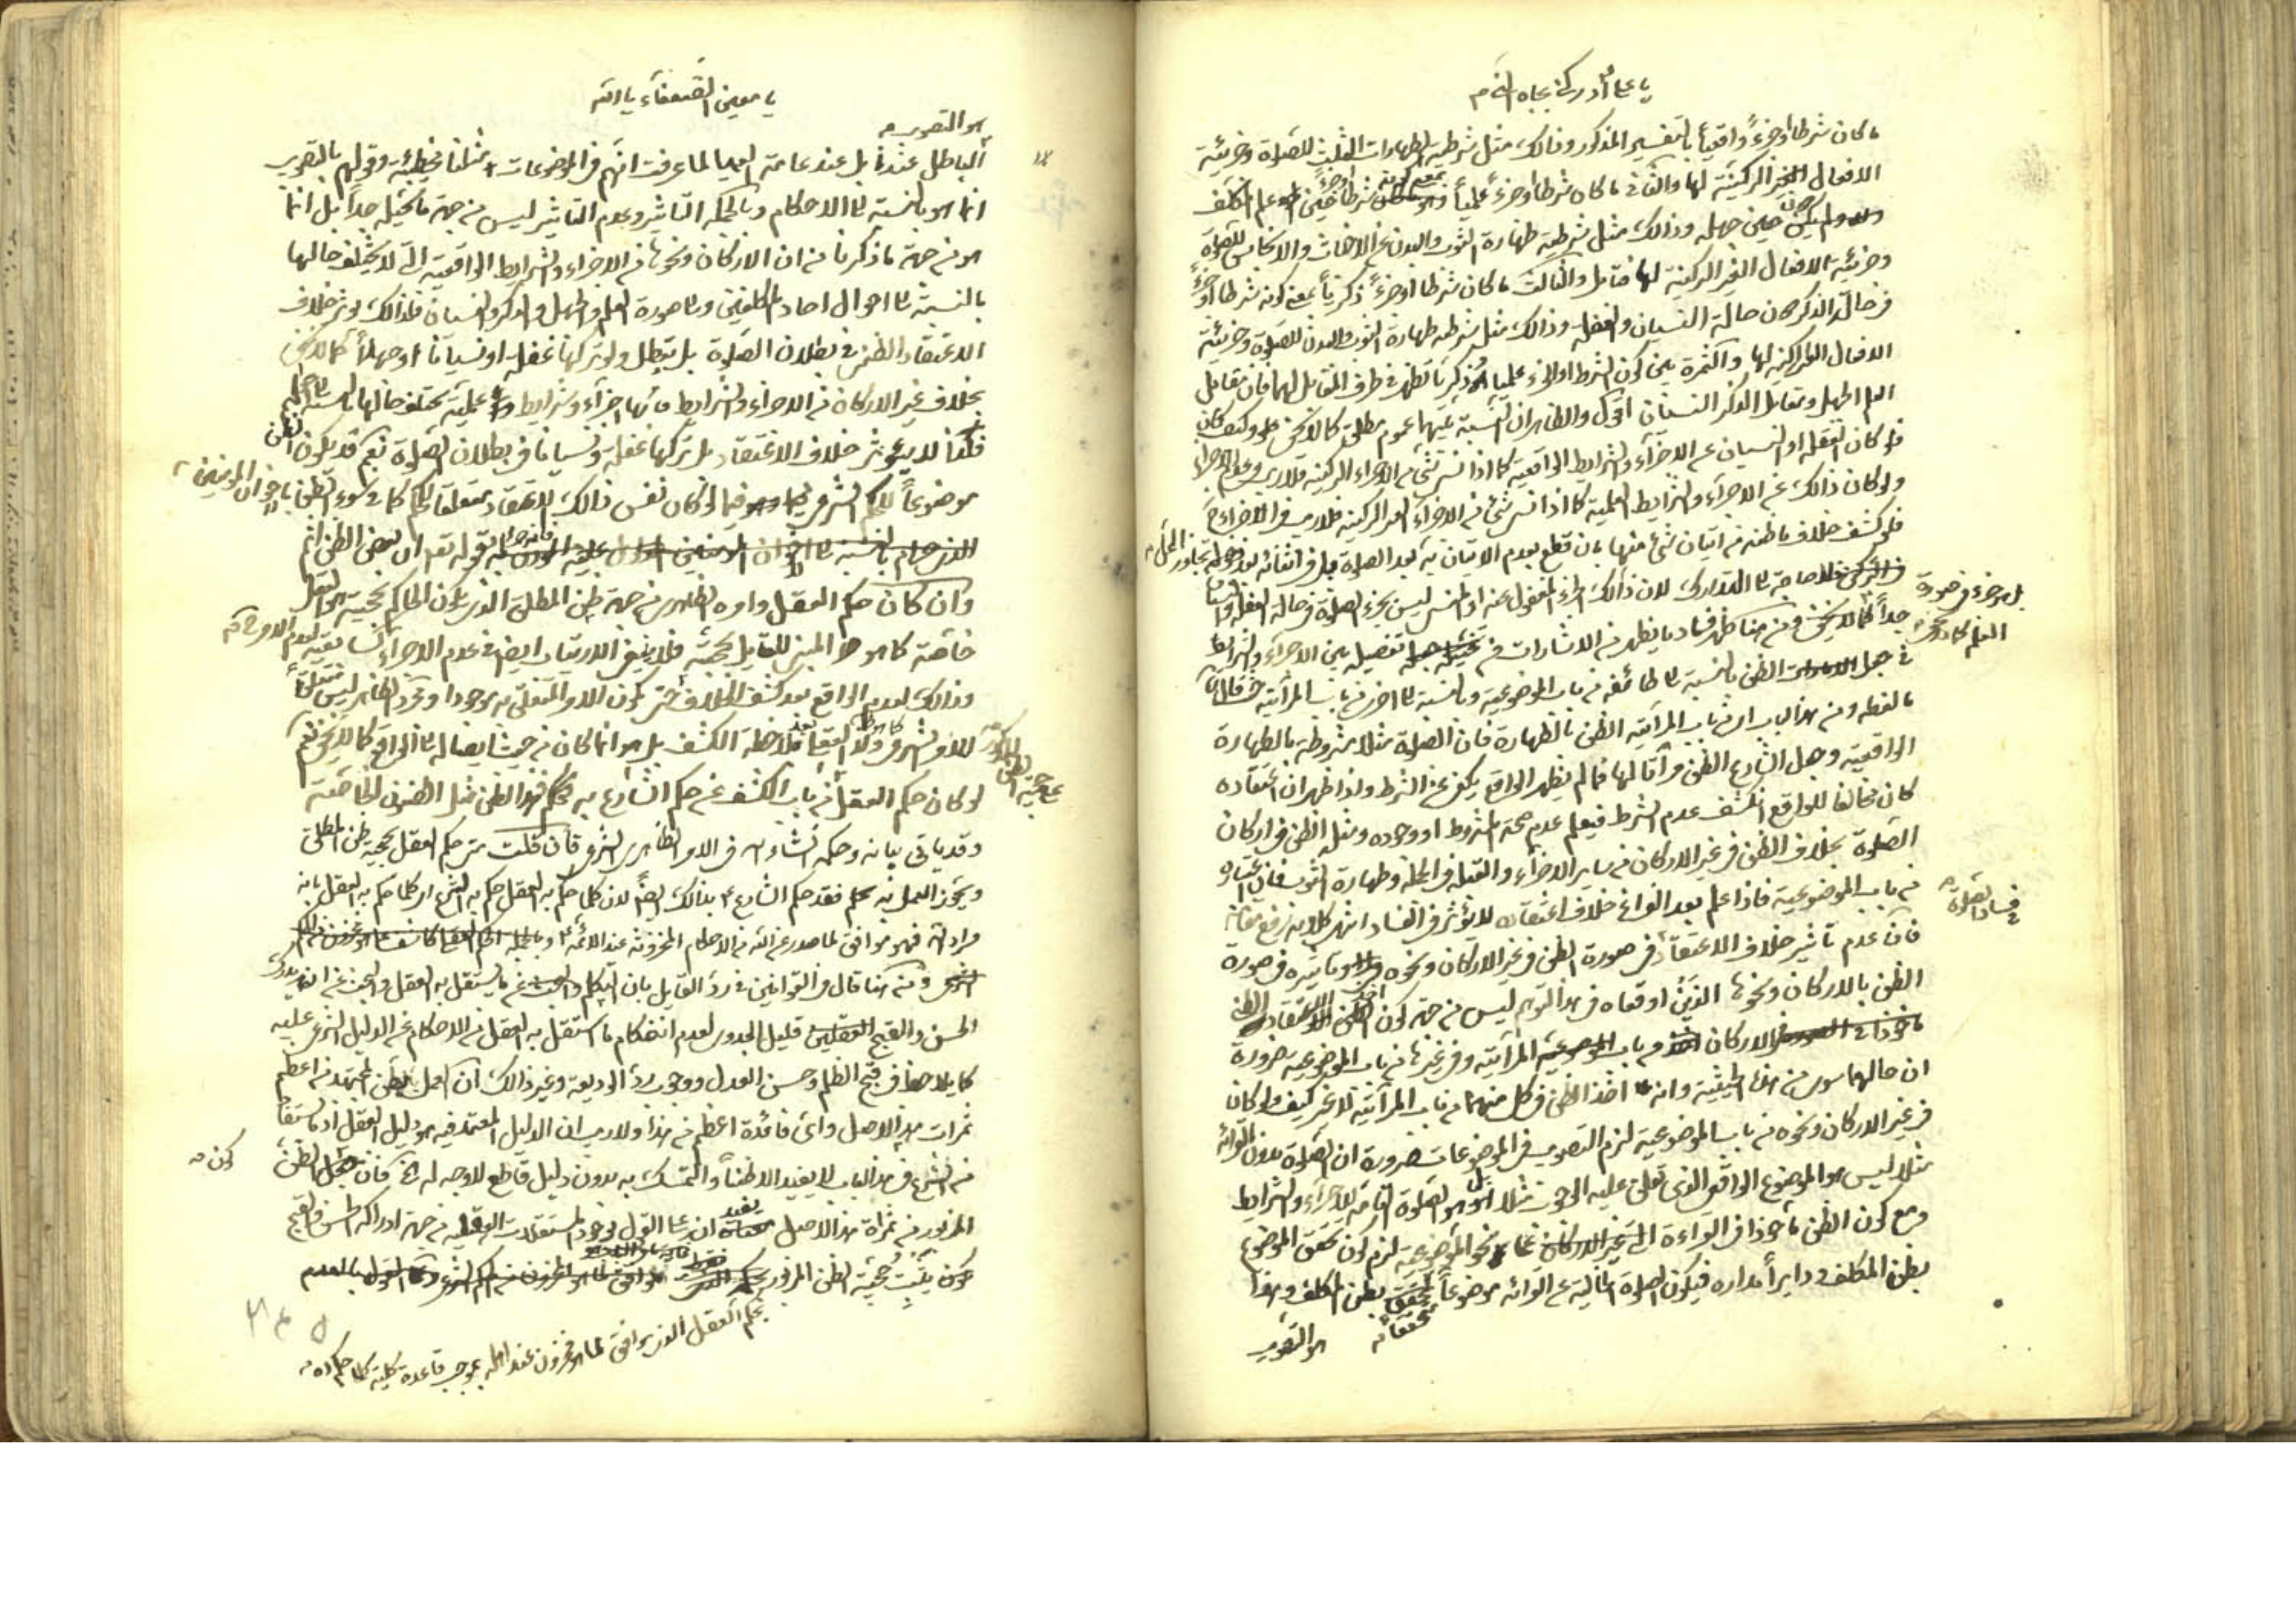 يا علي أدركني بجاه
ما كان شرطا أو جزءً واقعياً بالتفسير المذكور وذلك مثل شرطية الطهارات الثلث للصلوة وجزئية
الافعال الغير الركنية لها والثاني ما كان شرطا أو جزءً علمياً شرطا حين علم المكلف
ولم يكن حين جهله وذلك مثل شرطية طهارة الثوب والبدن عن الاخباث والانجاس للصلوة
وجزئية الافعال الغير الركنية لها فتأمل والثالث ما كان شرطا أو جزءً ذكرياً بمعنى كونه شرطا أو جزءً
في حالة الذكر دون حالة النسيان والغفلة وذلك مثل شرطية طهارة الثوب والبدن للصلوة وجزئية
الافعال لها والثمرة بين كون الشرط او الجزء علميا أو ذكريا تظهر في طرف المقابل لهما فان مقابل
العلم الجهل ومقابل الذكر النسيان أقول والظاهر ان النسبة بينهما عموم مطلق كما لا يخفى وكيف كان
فلو كان الغفلة او النسيان عن الاجزاء والشرايط الواقعية كما اذا نسي شئ من الاجزاء الركنية فلا ريب
ولو كان ذلك عن الاجزاء والشرايط العلمية كما اذا نسي شئ من الاجزاء الغير الركنية فلا ريب في الاجزاء
فلو كشف خلاف ما ظنه من اتيان شئ منها بان قطع بعدم الاتيان به بعد الصلوة بل في اثنائه بعد تجاوز المحل
فلا حاجة الى التدارك لان ذلك الجزء المغفول عنه او المنسي ليس بجزء للصلوة في حالة الغفلة والنسيان
بل هو جزء في صورة
العلم كما هو
جداً كما لا يخفى ومن هنا ظهر فساد ما يظهر من الاشارات من تفصيله بين الاجزاء والشرايط
في جعل الظن بالنسبة الى طائفة من باب الموضوعية وبالنسبة الى اخرى من باب المرآتية حيث قال
ما لفظه ومن هذا الباب اي من باب المرآتية الظن بالطهارة فان الصلوة مثلا مشروطة بالطهارة
الواقعية وجعل الشارع الظن مرآتا لها فما لم يظهر الواقع يكفي عن الشرط واذا ظهر ان اعتقاده
كان مخالفا للواقع انكشف عدم الشرط فيعلم عدم صحة المشروط او وجوده ومثله الظن في اركان
الصلوة بخلاف الظن في غير الاركان من ساير الاجزاء والقبلة في الجملة وطهارة الثوب فان اعتباره
من باب الموضوعية فاذا علم بعد الفراغ خلاف اعتقاده لا يؤثر في الفساد انتهى كلامه رفع مقامه
في فساد الصلوة
فان عدم تأثير خلاف الاعتقاد في صورة الظن في غير الاركان ونحوه وتأثيره في صورة
الظن بالاركان ونحوها الذين اوقعاه في هذا التوهم ليس من جهة كون الظن
في الاركان من باب المرآتية وفي غيرها من باب الموضوعية ضرورة
ان حالهما سوى من هذه الحيثية وانه اخذ الظن في كل منهما من باب المرآتية لا غير كيف ولو كان
في غير الاركان ونحوه من باب الموضوعية لزم التصويب في الموضوعات ضرورة ان الصلوة بدون القرائة
مثلا ليس هو الموضوع الواقع الذي تعلق عليه الوجوب مثلا بل هو الصلوة التامة الاجزاء والشرايط
ومع كون الظن مأخوذا في القراءة على نحو الموضوعية لزم كون تحقق الموضوع
بظن المكلف دايراً مداره فيكون الصلوة الخالية عن القرائه موضوعاً محققا بظن المكلف وهذا
هو التصويب
يا معين الضعفاء يا الله
هو التصويب
الباطل عندنا بل عند عامة العلماء لما عرفت انهم في الموضوعات مثلنا مخطئة وقولهم بالتصويب
انما هو بالنسبة الى الاحكام وبالجملة التأثير وعدم التأثير ليس من جهة ما تخيله جداً بل انما
هو من جهة ما ذكرنا من ان الاركان ونحوها من الاجزاء والشرايط الواقعية التي لا يختلف حالها
بالنسبة الى احوال احاد المكلفين وصورة العلم والجهل والذكر والنسيان فلذلك يؤثر خلاف
الاعتقاد الظني في بطلان الصلوة بل تبطل ولو تركها غفلة او نسيانا او جهلاً كما لا يخفى
بخلاف غير الاركان من الاجزاء والشرايط فانها اجزاء وشرايط علمية يختلف حالها بالنسبة الى
فلذا لا يؤثر خلاف الاعتقاد بل تركها غفلة ونسيانا في بطلان الصلوة نعم قد يكون الظن
موضوعاً للحكم الشرعي فيما لو كان نفس ذلك الاعتقاد متعلقا للحكم كما في سوء الظن باخوان المؤمنين
لقوله تعالى ان بعض الظن اثم
وان كان حكم العقل وامره الظاهري من جهة ظن المطلق الذي يكون الحاكم بحجيته هو العقل
خاصة كما هو المبنى للقايل بحجيته فلا ينبغي الارتياب ايضا في عدم الاجزاء
وذلك لعدم الواقع بعد كشف الخلاف حتى يكون الامر المتعلق به موجودا ومجرد الظاهر ليس متعلقاً
للامر الشرعي بملاحظة الكشف بل هو انما كان من حيث ايصاله الى الواقع كما لا يخفى نعم
على حجية الظن
لو كان حكم العقل من باب الكشف عن حكم الشارع به فحكم هذا الظن مثل الظنون الخاصة
وقد يأتي بيانه وحكمه انشاء الله في الامر الظاهري الشرعي فان قلت متى حكم العقل بحجية ظن المطلق
ويجوز العمل به يحكم فقد حكم الشارع بذلك ايضاً لان كلما حكم به العقل حكم به الشرع اي كلما حكم به العقل بانه
مراد الله فهو موافق لما صدر عن الله من الاحكام المخزونة عند الائمة
ومن هنا قال في القوانين في رد القايل بان التكلم عن ما يستقل به العقل والبحث عن انه يدرك
الحسن والقبح قليل الجدوى لعدم انفكاك ما استقل به العقل من الاحكام عن الدليل الشرعي عليه
كما يلاحظ في قبح الظلم وحسن العدل ووجوب رد الوديعة وغير ذلك ان العمل بظن المجتهد من اعظم
ثمرات هذا الاصل واي فائدة اعظم من هذا ولا ريب ان الدليل المعتمد فيه هو دليل العقل اذ ما يستفاد
من الشرع في هذا الباب لا يفيد الا ظناً والتمسك به بدون دليل قاطع لا وجه له فان الظن
كون
المزبور من ثمرات هذا الاصل يفيد ان على القول بوجود المستقلات العقلية من جهة ادراكه الحسن والقبح
يثبت حجية الظن المزبور
بحكم العقل الذي يوافق لما هو مخزون عند اهله بموجب قاعدة كلية كلما حكم